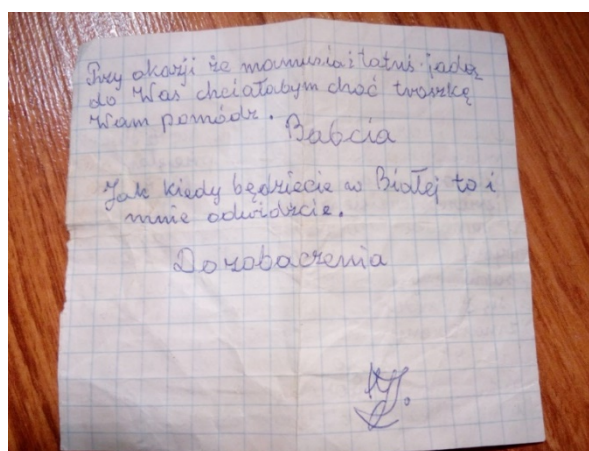 Przy okazji że mamusia i tatuś jadą
do Was chciałabym choć troszkę
Wam pomódz.
Babcia
Jak kiedy będziecie w Białej to i
mnie odwidzcie.
Dozobaczenia